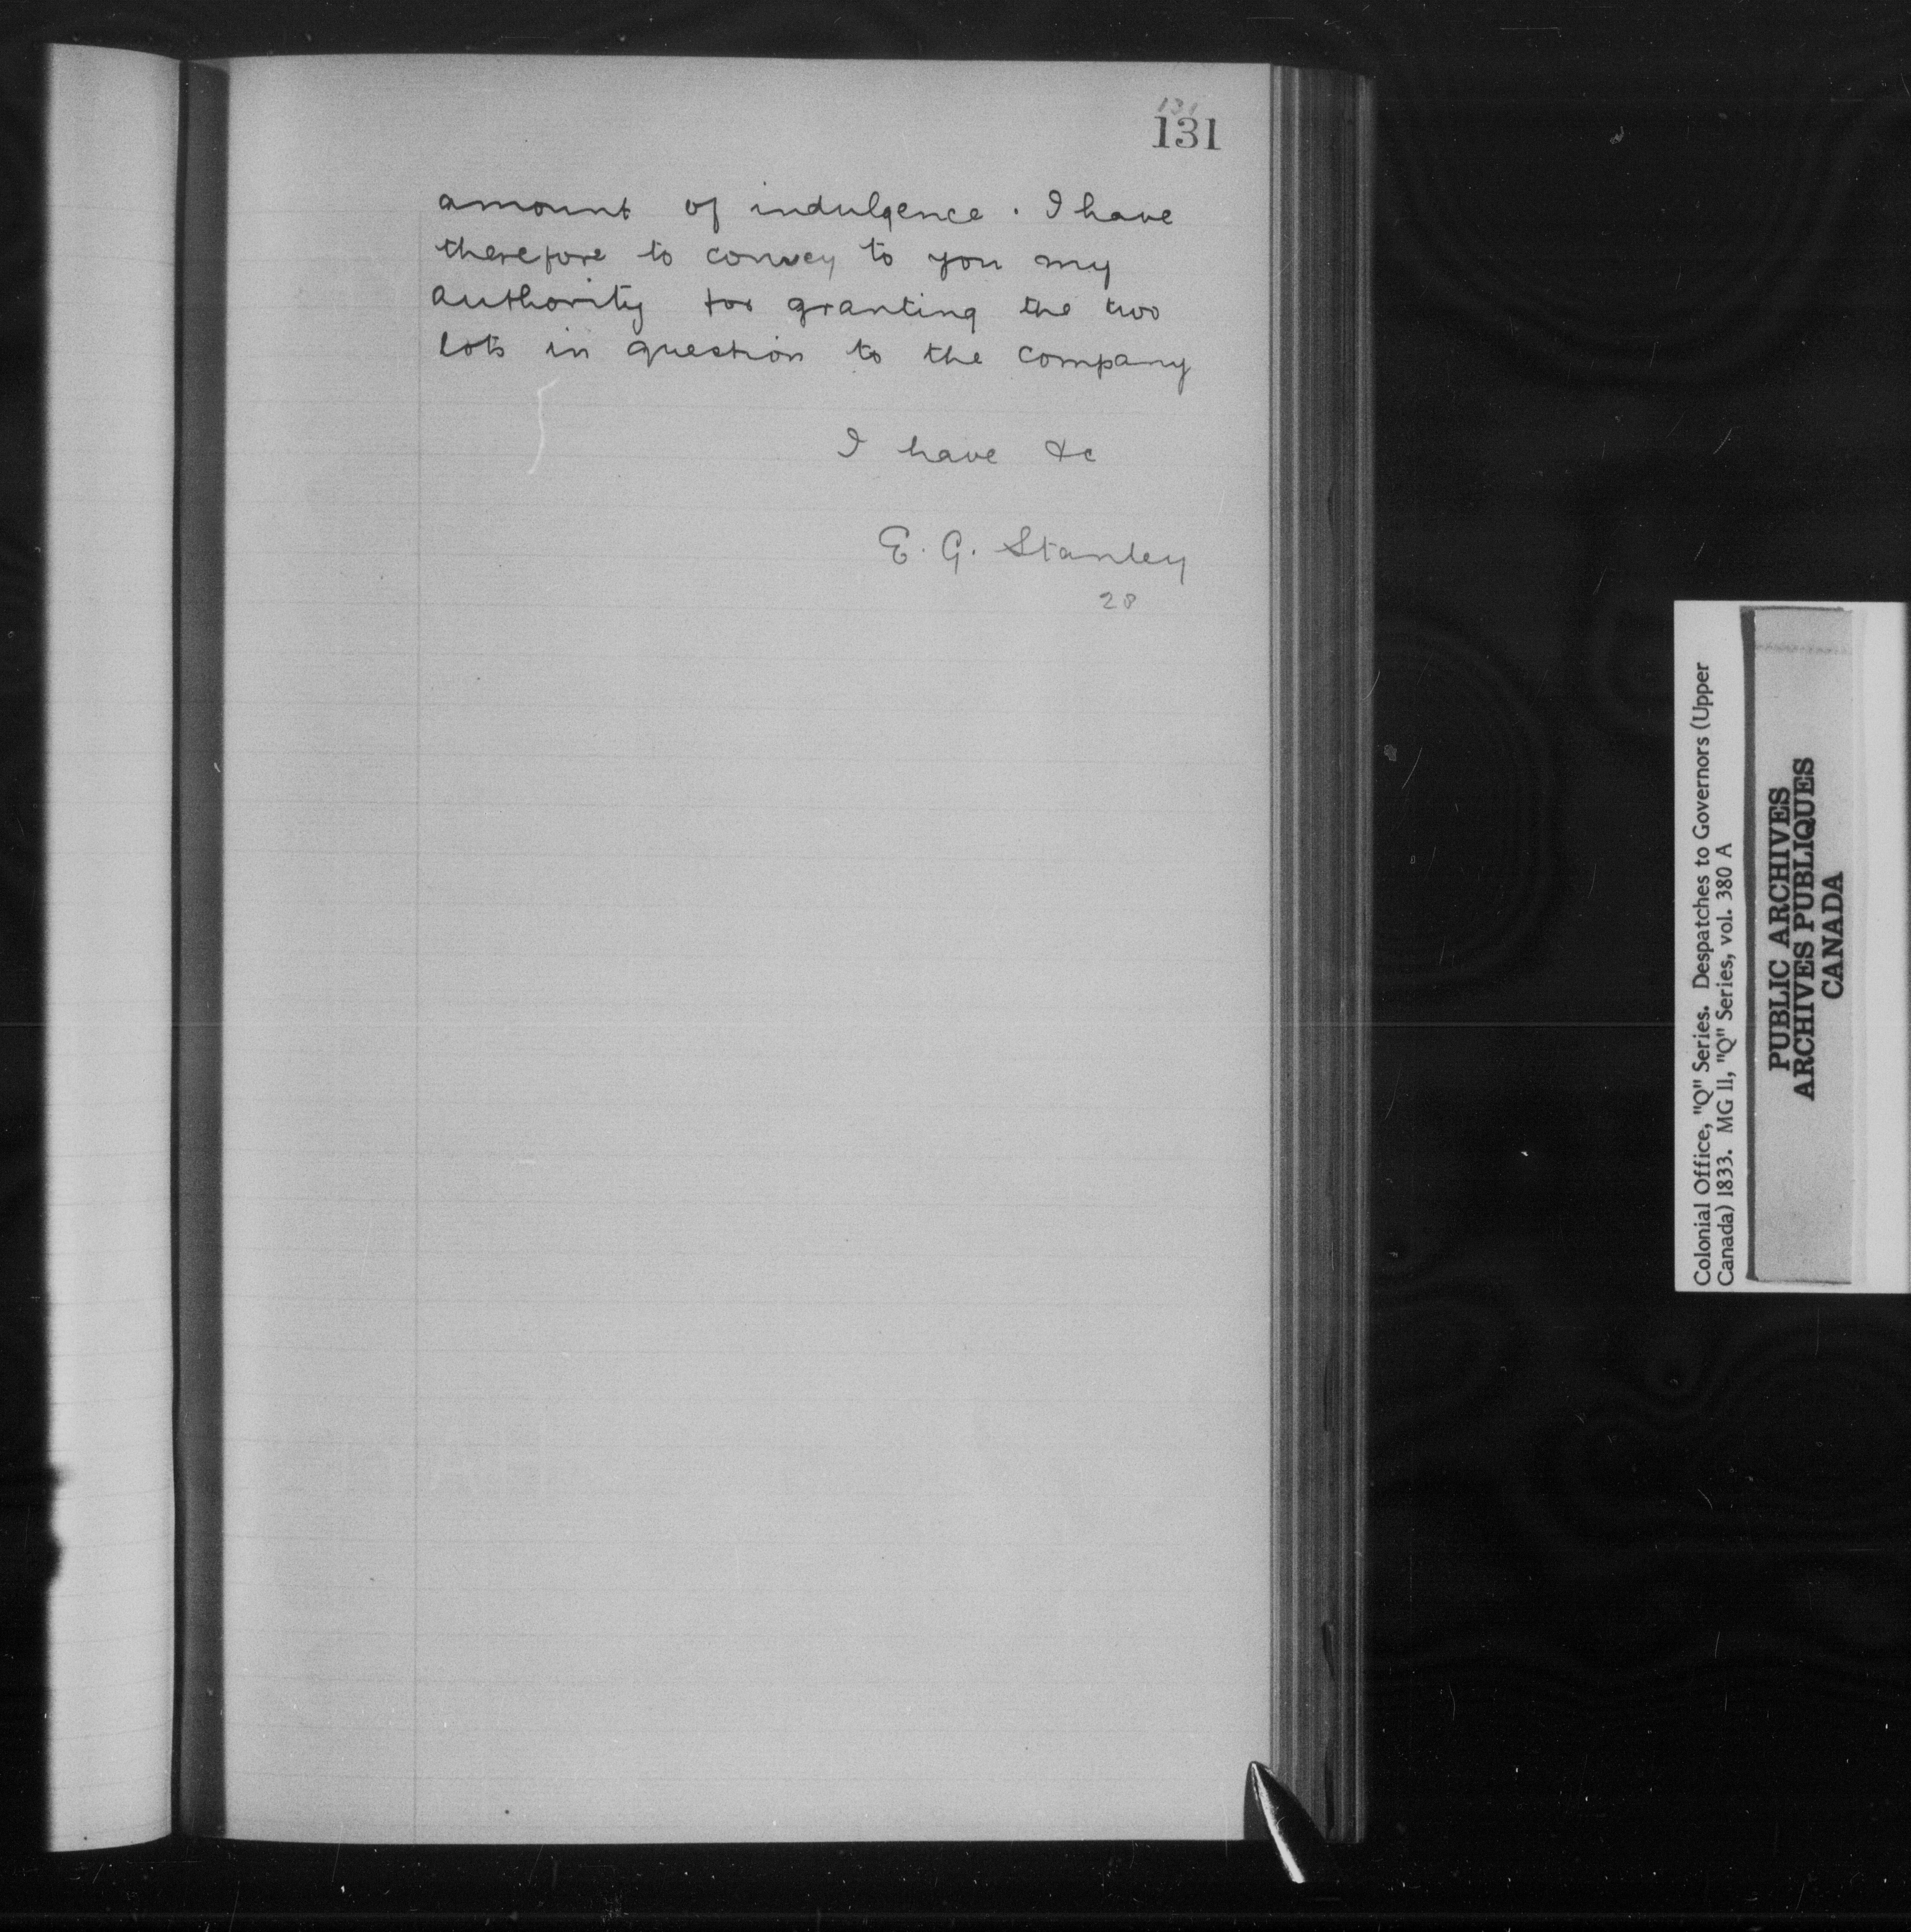 131
131
amount of indulgence. I have
therefore to convey to you my
authority for granting the two
lots in question to the company
I have &c
E. G. Stanley
28
Colonial Office, "Q" Series. Despatches to Governors (Upper
Canada) 1833. MG 11, "Q" Series, vol. 380 A
PUBLIC ARCHIVES
ARCHIVES PUBLIQUES
CANADA